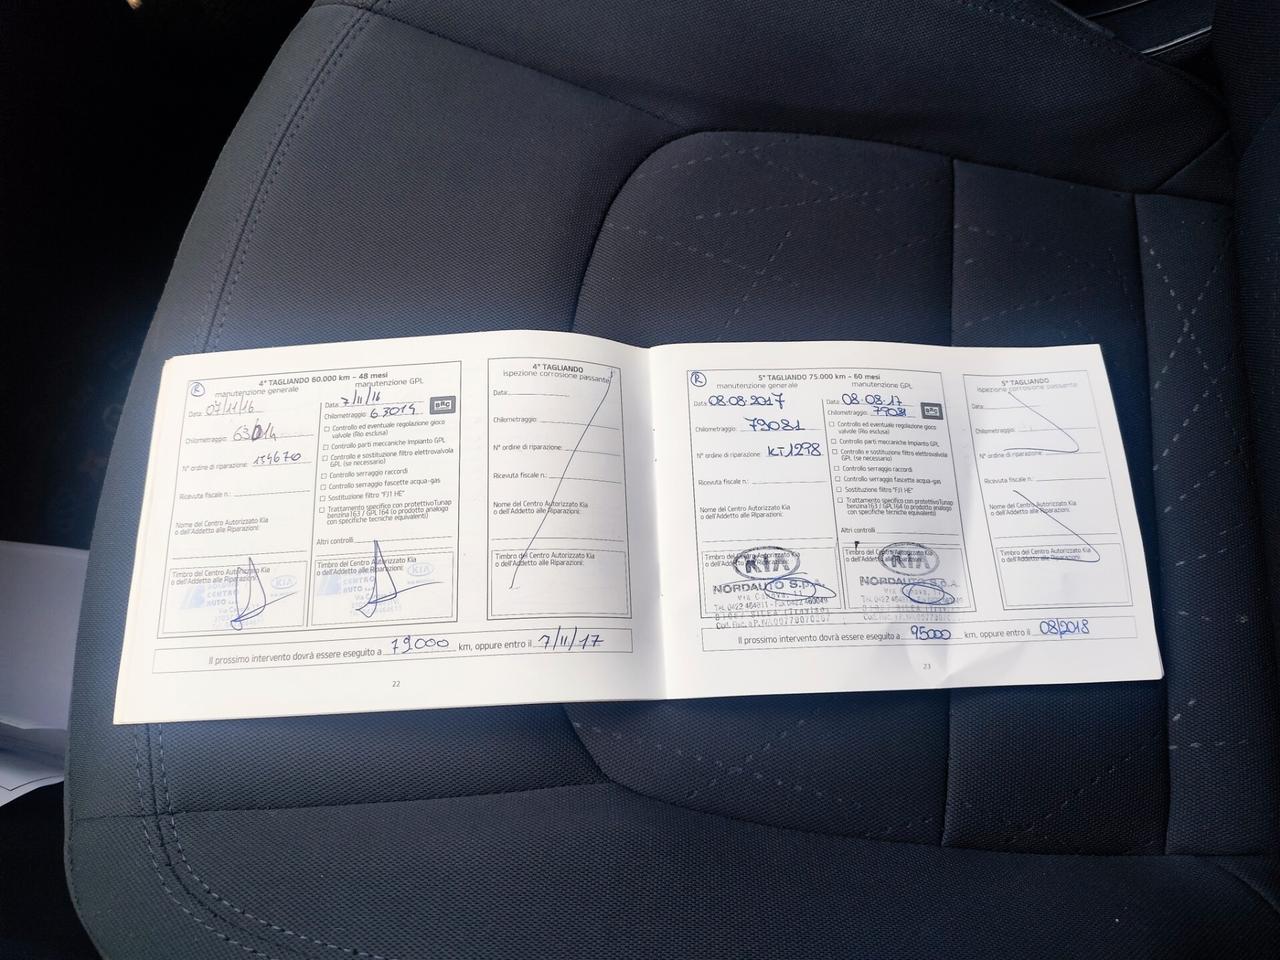 R
4° TAGLIANDO 60.000 km – 48 mesi
manutenzione generale
manutenzione GPL
Data: 07/11/16
Data: 7/11/16
Chilometraggio: 63014
Chilometraggio: 63014
BRC
N° ordine di riparazione: 134670
Ricevuta fiscale n.:
Nome del Centro Autorizzato Kia
o dell'Addetto alle Riparazioni:
Controllo ed eventuale regolazione gioco
valvole (Rio esclusa)
Controllo parti meccaniche Impianto GPL
Controllo e sostituzione filtro elettrovalvola
GPL (se necessario)
Controllo serraggio raccordi
Controllo serraggio fascette acqua-gas
Sostituzione filtro "FJ1 HE"
Trattamento specifico con protettivo Tunap
benzina 163 / GPL 164 (o prodotto analogo
con specifiche tecniche equivalenti)
Altri controlli
Timbro del Centro Autorizzato Kia
o dell'Addetto alle Riparazioni:
CENTRO
AUTO
KIA
Timbro del Centro Autorizzato Kia
o dell'Addetto alle Riparazioni:
CENTRO
AUTO
KIA
4° TAGLIANDO
ispezione corrosione passante
Data:
Chilometraggio:
N° ordine di riparazione:
Ricevuta fiscale n.:
Nome del Centro Autorizzato Kia
o dell'Addetto alle Riparazioni:
Timbro del Centro Autorizzato Kia
o dell'Addetto alle Riparazioni:
Il prossimo intervento dovrà essere eseguito a 79000 km, oppure entro il 7/11/17
22
R
5° TAGLIANDO 75.000 km – 60 mesi
manutenzione generale
manutenzione GPL
Data: 08.08.2017
Data: 08.08.17
Chilometraggio: 79081
Chilometraggio: 79081
BRC
N° ordine di riparazione: KT1298
Ricevuta fiscale n.:
Nome del Centro Autorizzato Kia
o dell'Addetto alle Riparazioni:
Controllo ed eventuale regolazione gioco
valvole (Rio esclusa)
Controllo parti meccaniche Impianto GPL
Controllo e sostituzione filtro elettrovalvola
GPL (se necessario)
Controllo serraggio raccordi
Controllo serraggio fascette acqua-gas
Sostituzione filtro "FJ1 HE"
Trattamento specifico con protettivo Tunap
benzina 163 / GPL 164 (o prodotto analogo
con specifiche tecniche equivalenti)
Altri controlli
Timbro del Centro Autorizzato Kia
o dell'Addetto alle Riparazioni:
KIA
NORDAUTO S.p.A.
Timbro del Centro Autorizzato Kia
o dell'Addetto alle Riparazioni:
KIA
NORDAUTO S.p.A.
5° TAGLIANDO
ispezione corrosione passante
Data:
Chilometraggio:
N° ordine di riparazione:
Ricevuta fiscale n.:
Nome del Centro Autorizzato Kia
o dell'Addetto alle Riparazioni:
Timbro del Centro Autorizzato Kia
o dell'Addetto alle Riparazioni:
Il prossimo intervento dovrà essere eseguito a 95000 km, oppure entro il 08/2018
23